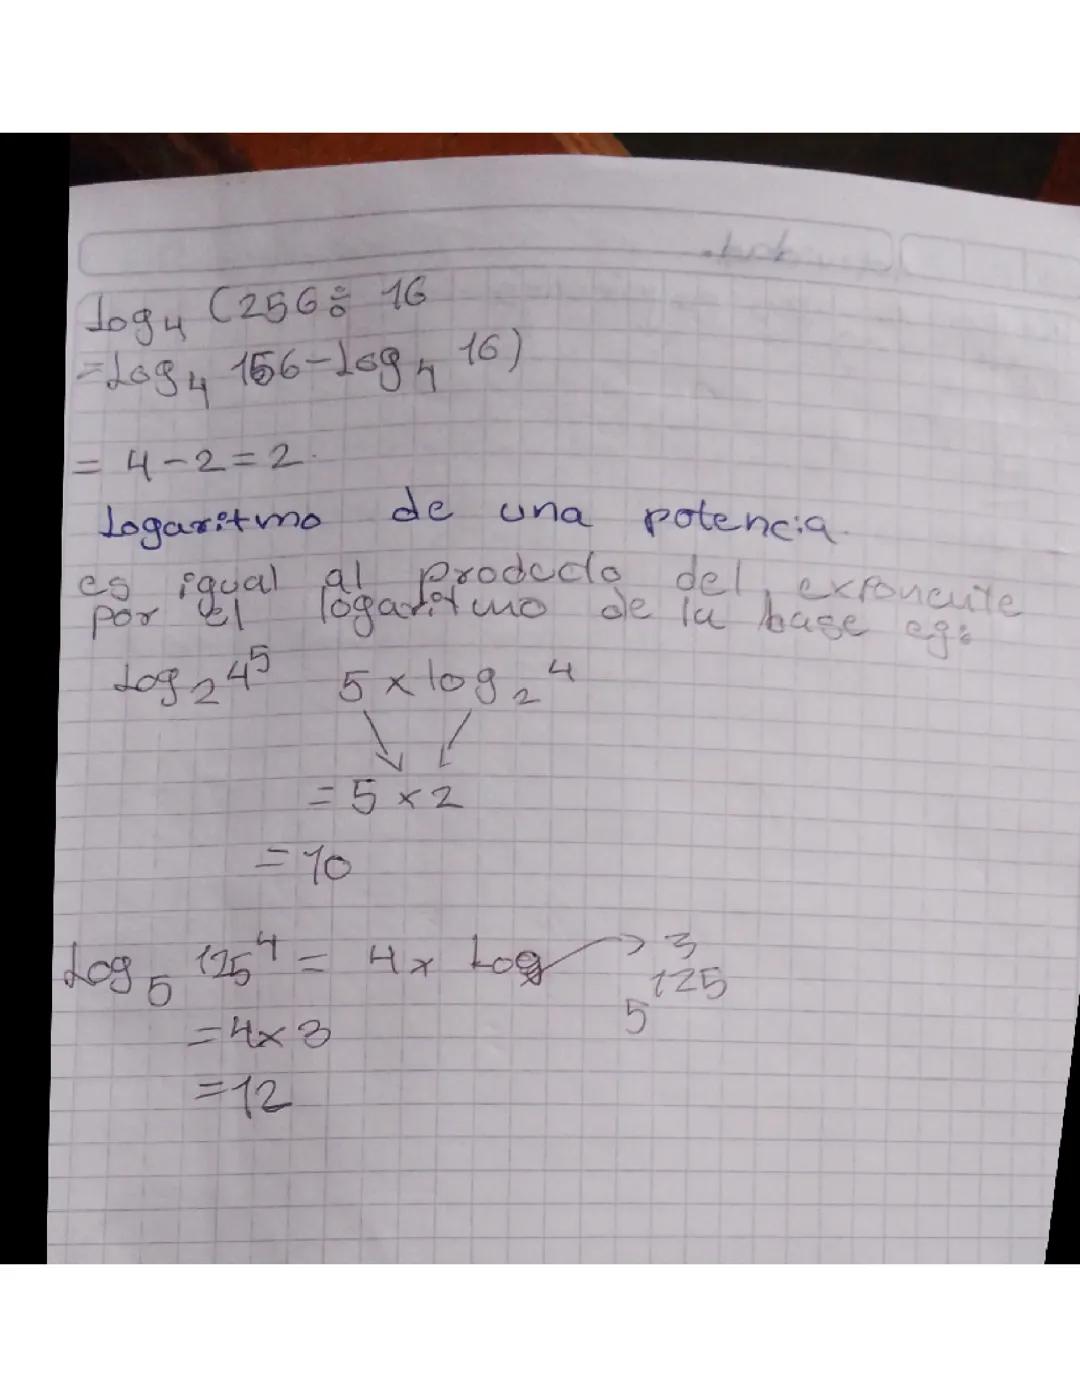 log₄ (256÷ 16
=Log₄ 156-Log₄ 16)
= 4-2=2.
Logaritmo de una potencia.
es igual al producto del exponente
por el logaritmo de la base eg:
Log₂ 4⁵ 5 x log₂ 4
= 5 x 2
= 10
Log₅ 125⁴ = 4 x Log₅ 125 3
= 4x 3
= 12